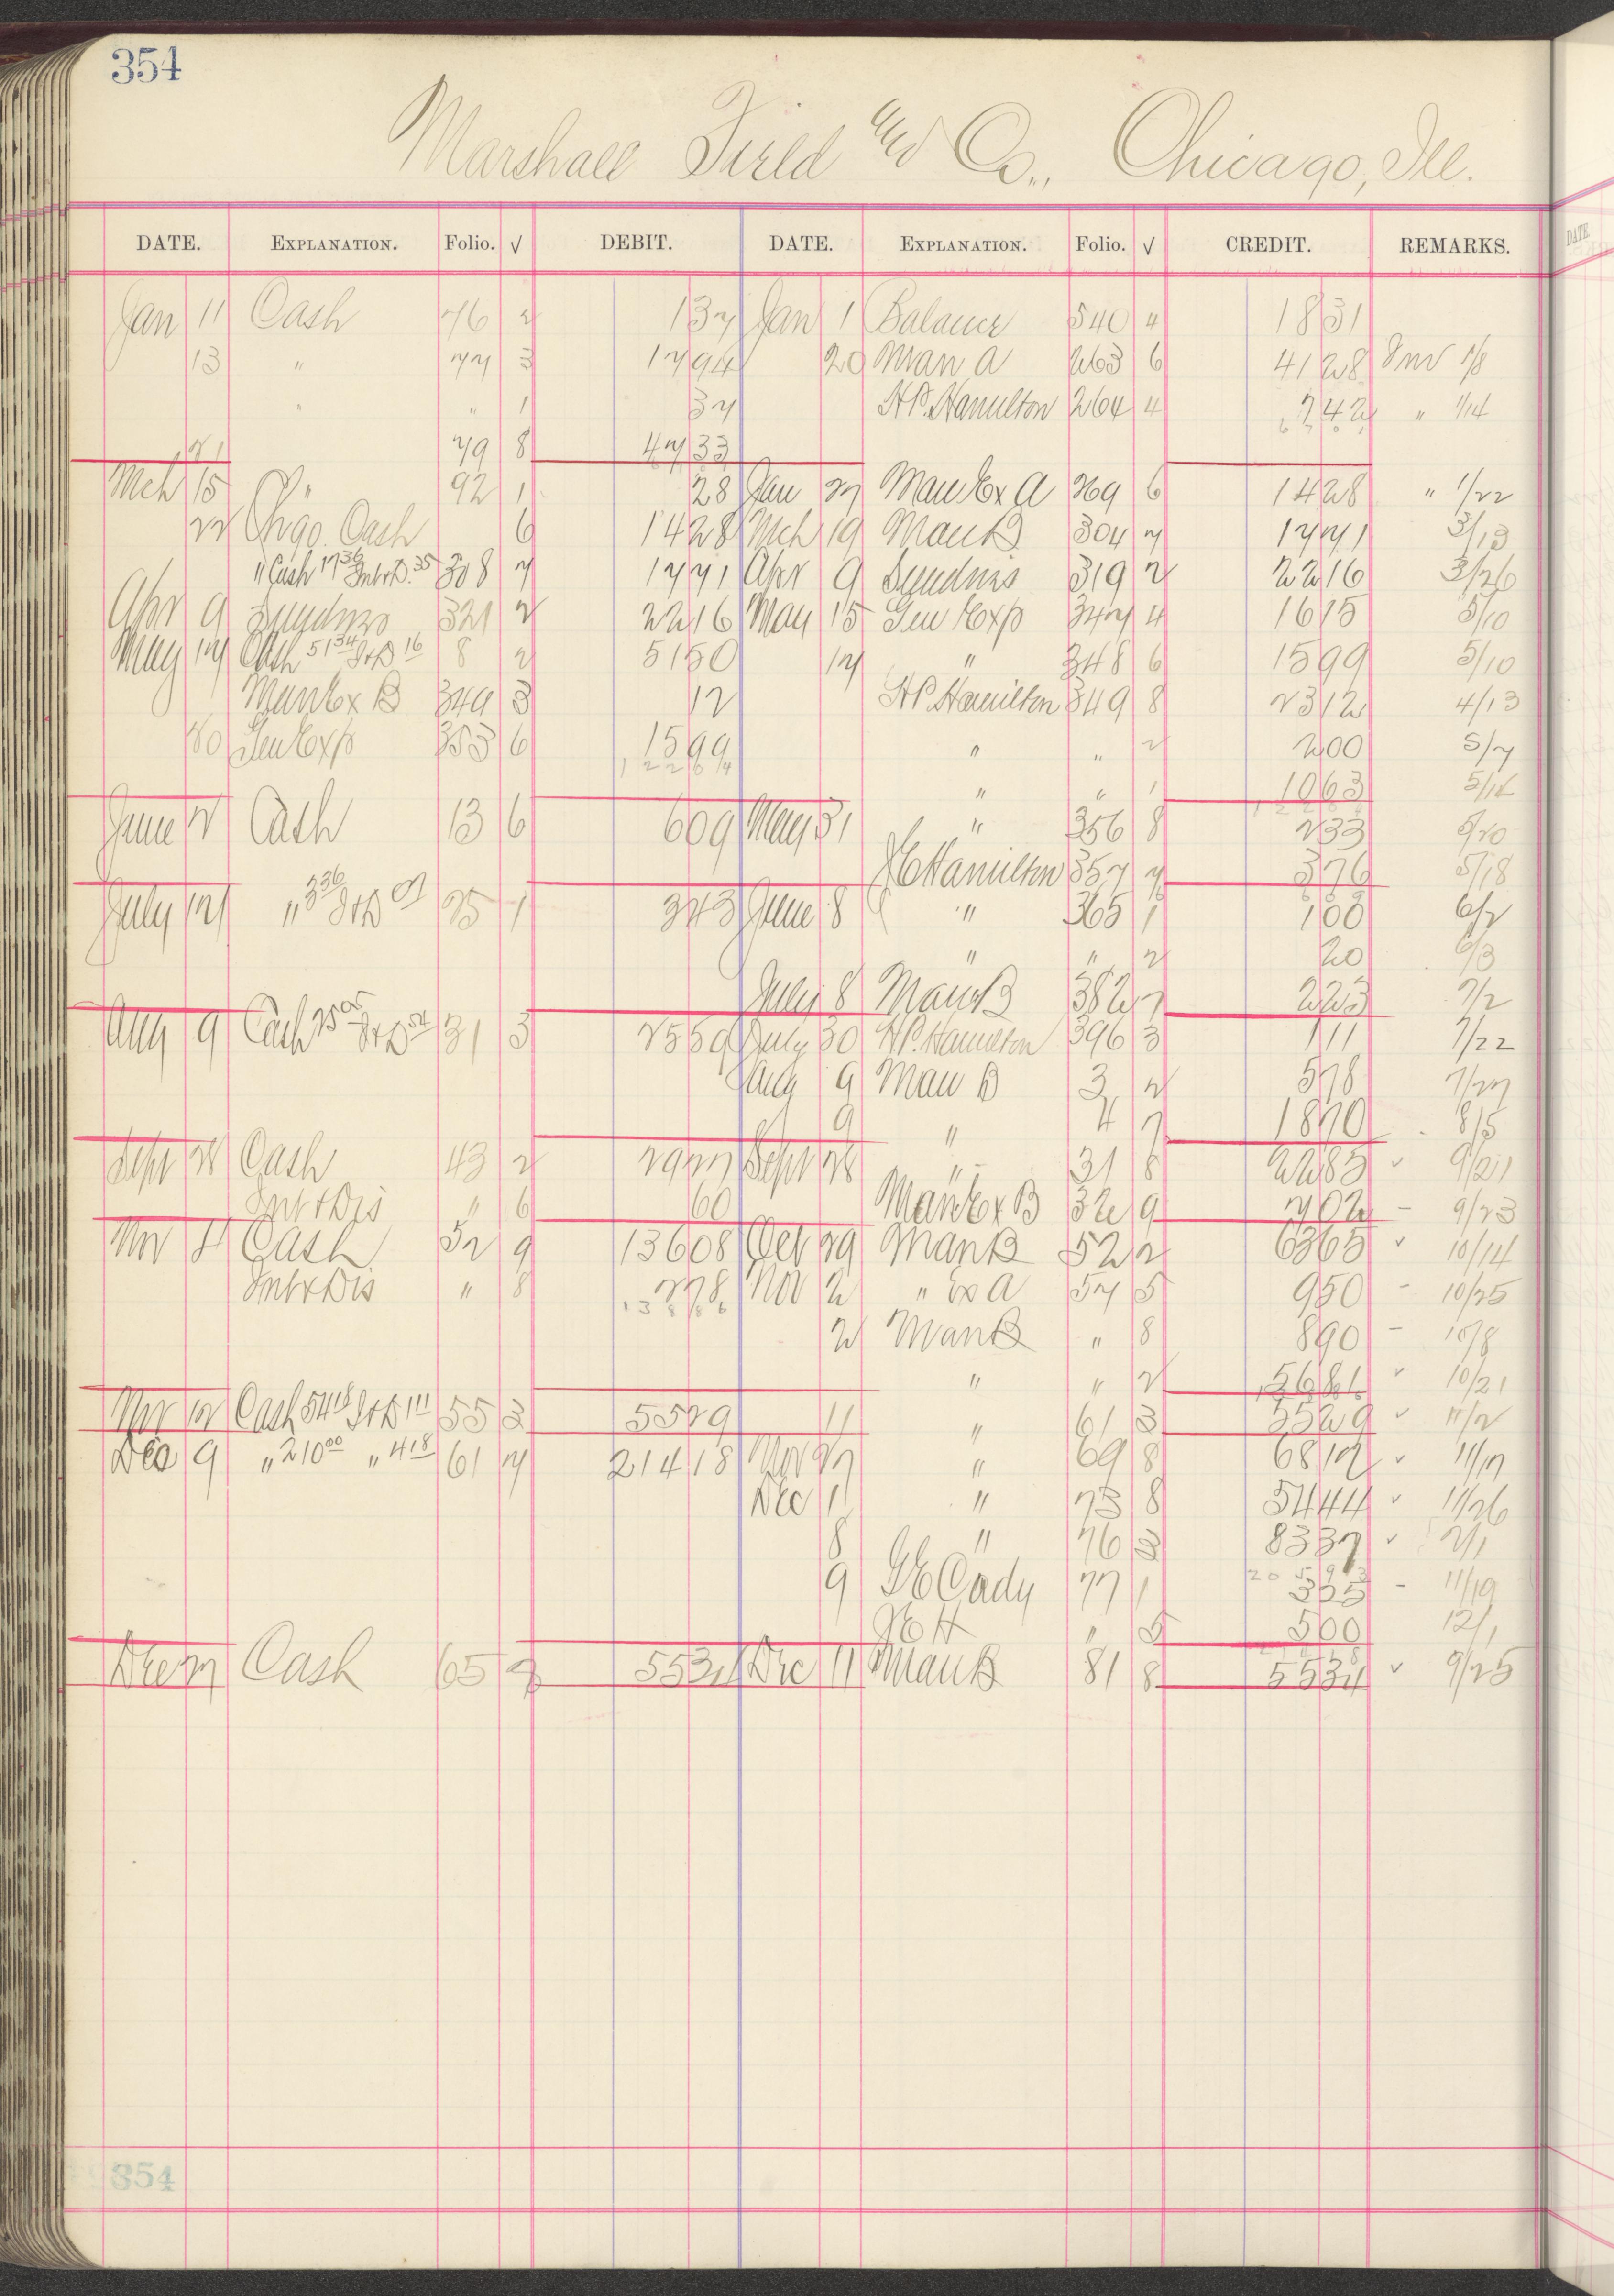 354
Marshall Field and Co., Chicago, Ill.
DATE. EXPLANATION. Folio. √ DEBIT. DATE. EXPLANATION. Folio. √ CREDIT. REMARKS.
Jan 11 Cash 76 2 137 Jan 1 Balance 540 4 1831
13 " 77 3 1794 20 Man A 263 6 4128 Inv 1/8
" " 1 37 H.P. Hamilton 264 4 742 " 1/14
21 79 8 4733
Mch 15 " 92 1 28 Jan 27 Man Ex A 269 6 1428 " 1/22
22 Chgo. Cash 6 1428 Mch 19 Man B 304 7 1771 3/13
" Cash 1736 Int & D. 35 308 7 1771 Apr 9 Sundries 319 2 2216 3/26
Apr 9 Sundries 321 2 2216 May 15 Gen Exp 347 4 1615 5/10
May 17 Cash 5134 I & D 16 8 2 5150 17 " 348 6 1599 5/10
Man Ex B 349 3 12 H.P. Hamilton 349 8 2312 4/13
20 Gen Exp 353 6 1599 " " 2 200 5/7
12264
" " 1 1063 5/14
June 2 Cash 13 6 609 May 31 " 356 8 233 5/20
Hamilton 357 7 376 5/18
July 12 " 336 I & D 07 25 1 343 June 8 " 365 1 100 6/2
" " 2 20 6/3
July 8 Man B 382 7 223 7/2
Aug 9 Cash 2505 I & D 54 31 3 2559 July 30 H.P. Hamilton 396 3 111 7/22
Aug 9 Man B 3 2 578 7/27
9 " 4 7 1870 8/5
Sept 28 Cash 43 2 2927 Sept 28 " 31 8 2285 ✓ 9/21
Int & Dis " 6 60 Man Ex B 32 9 702 - 9/23
Nov 8 Cash 52 9 13608 Oct 29 Man B 52 2 6365 ✓ 10/14
Int & Dis " 8 278 Nov 2 " Ex A 57 5 950 - 10/25
13886
2 Man B " 8 890 - 10/8
" " 2 5681 ✓ 10/21
Nov 12 Cash 5418 I & D 111 55 3 5529 11 " 61 3 5529 ✓ 11/2
Dec 9 " 21000 " 418 61 7 21418 Nov 27 " 69 8 6812 ✓ 11/17
Dec 1 " 73 8 5444 ✓ 11/26
8 " 76 3 8337 ✓
9 G E Cady 77 1 325 - 11/19
" 5 500 12/1
Dec 27 Cash 65 5534 Dec 11 Man B 81 8 5534 ✓ 9/25
354